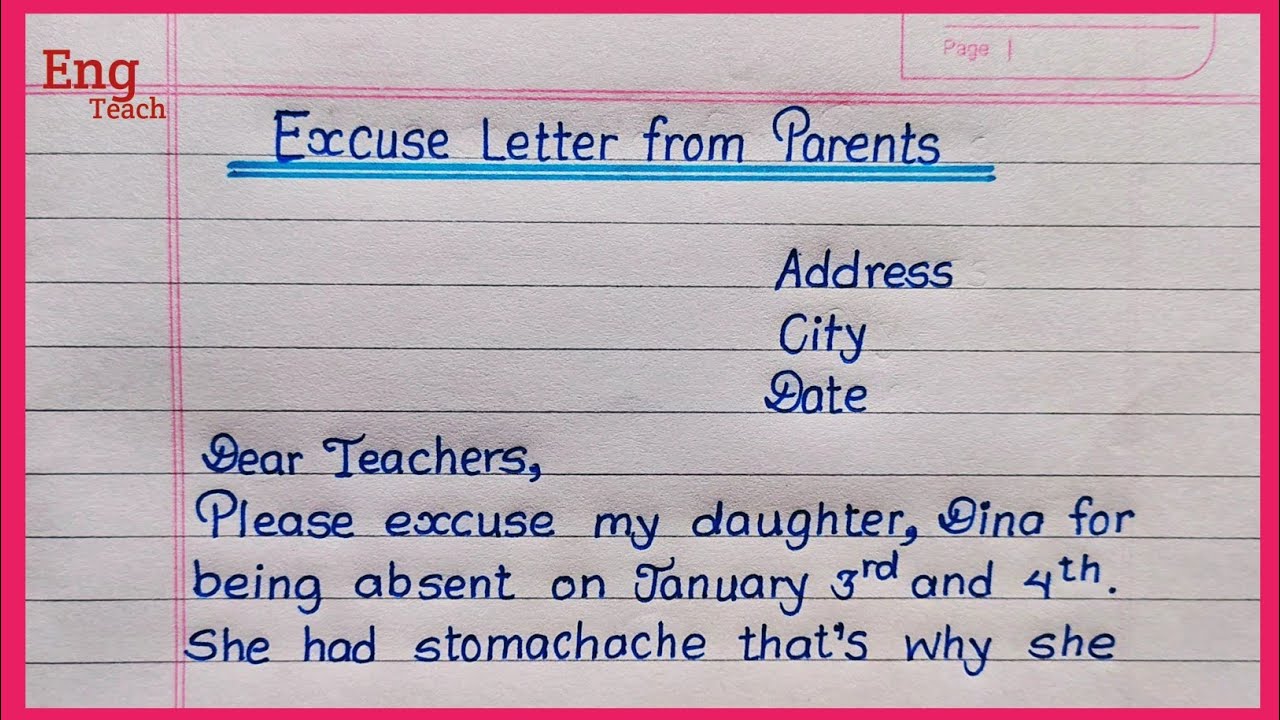 Eng
Teach
Page
Excuse Letter from Parents
Address
City
Date
Dear Teachers,
Please excuse my daughter, Dina for
being absent on January 3rd and 4th.
She had stomachache that's why she